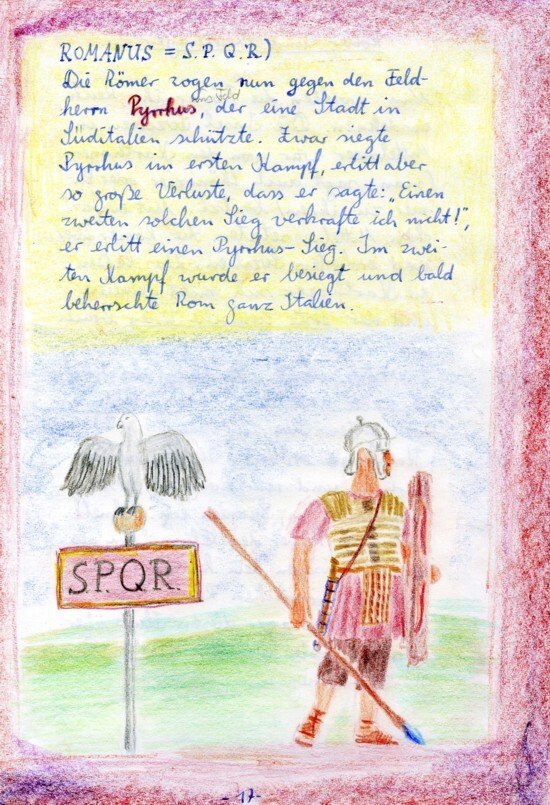 ROMANUS = S.P.Q.R)
Die Römer zogen nun gegen den Feld-
ins Feld
herrn Pyrrhus, der eine Stadt in
Süditalien schützte. Zwar siegte
Pyrrhus im ersten Kampf, erlitt aber
so große Verluste, dass er sagte: „Einen
zweiten solchen Sieg verkrafte ich nicht!",
er erlitt einen Pyrrhus-Sieg. Im zwei-
ten Kampf wurde er besiegt und bald
beherrschte Rom ganz Italien.
S.P.Q.R.
- 17 -